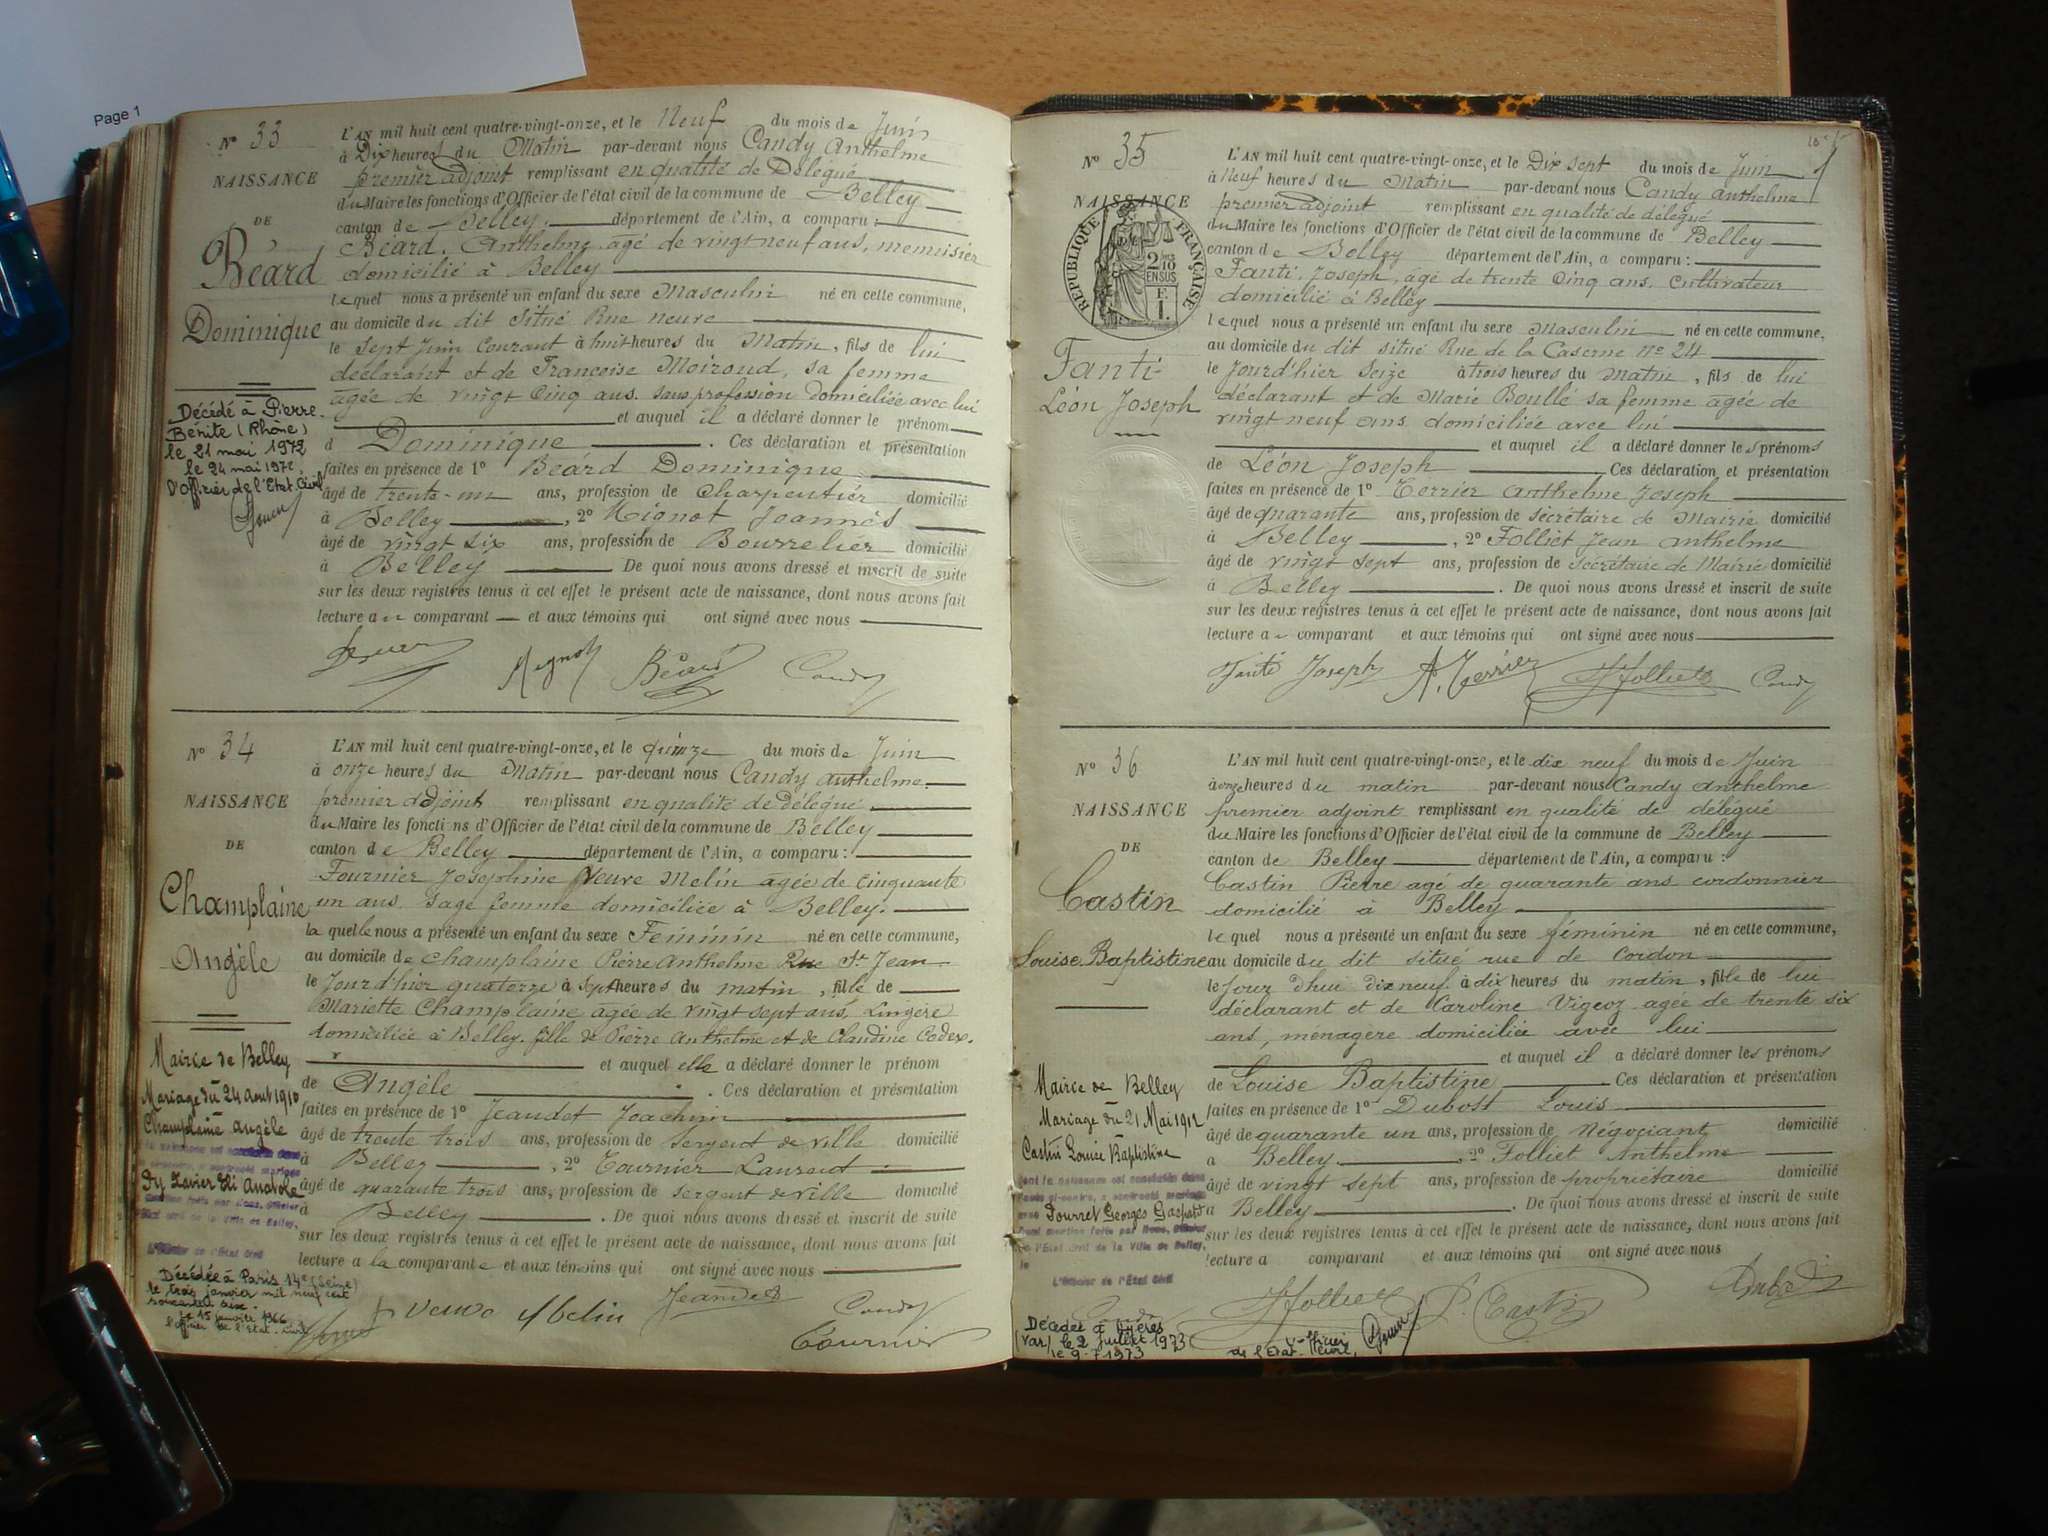 Page 1
N° 33
NAISSANCE
DE
Béard
Dominique
Décédé à Pierre-
Bénite (Rhône)
le 21 mai 1972
le 24 mai 1972
L'Officier de l'Etat Civil
L'AN mil huit cent quatre-vingt-onze, et le Neuf du mois de Juin
à Dix heures du Matin par-devant nous Candy Anthelme
premier adjoint remplissant en qualité de Délégué
du Maire les fonctions d'Officier de l'état civil de la commune de Belley
canton de Belley. département de l'Ain, a comparu :
Béard. Anthelme agé de vingt neuf ans, menuisier
domicilié à Belley
lequel nous a présenté un enfant du sexe Masculin né en cette commune,
au domicile du dit situé Rue neuve
le sept Juin Courant à huit heures du Matin, fils de lui
déclarant et de Françoise Moiroud, sa femme
agée de vingt Cinq ans. sans profession domiciliée avec lui
et auquel il a déclaré donner le prénom
d Dominique. Ces déclaration et présentation
faites en présence de 1° Béard Dominique
âgé de trente-un ans, profession de Charpentier domicilié
à Belley, 2° Mignot Jeannès
âgé de vingt six ans, profession de Bourrelier domicilié
à Belley De quoi nous avons dressé et inscrit de suite
sur les deux registres tenus à cet effet le présent acte de naissance, dont nous avons fait
lecture au comparant et aux témoins qui ont signé avec nous
Mignot Béard Candy
N° 34
NAISSANCE
DE
Champlaine
Angèle
Mairie de Belley
Mariage du 24 Aout 1910
Champlaine Angèle
dont la naissance est constatée dans
l'acte ci-contre, a contracté mariage
Dy Xavier Eli Anatole
mention faite par Nous, Officier
de l'Etat civil de la Ville de Belley,
L'Officier de l'Etat Civil
Décédée à Paris 14e (Seine)
le trois janvier mil neuf cent
soixante six.
le 15 janvier 1966
l'officier de l'Etat civil
L'AN mil huit cent quatre-vingt-onze, et le quinze du mois de Juin
à onze heures du Matin par-devant nous Candy anthelme
premier adjoint remplissant en qualité de délégué
du Maire les foncti ns d'Officier de l'état civil de la commune de Belley
canton de Belley département de l'Ain, a comparu :
Fournier Joséphine Veuve Melin agée de cinquante
un ans Sage femme domiciliée à Belley.
la quelle nous a présenté un enfant du sexe Féminin né en cette commune,
au domicile de Champlaine Pierre Anthelme Rue St Jean
le Jour d'hier quatorze à sept heures du matin, fille de
Mariette Champlaine agée de vingt sept ans, Lingère
domiciliée à Belley. fille de Pierre Anthelme et de Claudine Codex.
et auquel elle a déclaré donner le prénom
de Angèle. Ces déclaration et présentation
faites en présence de 1° Jeandet Joachim
âgé de trente trois ans, profession de Sergent de ville domicilié
à Belley, 2° Tournier Laurent
âgé de quarante trois ans, profession de Sergent de ville domicilié
à Belley. De quoi nous avons dressé et inscrit de suite
sur les deux registres tenus à cet effet le présent acte de naissance, dont nous avons fait
lecture a la comparante et aux témoins qui ont signé avec nous
veuve Melin Jeandet Candy
Tournier
N° 35
NAISSANCE
RÉPUBLIQUE FRANÇAISE
2 10es
EN SUS
F.
1.
Fanti
Léon Joseph
L'AN mil huit cent quatre-vingt-onze, et le Dix Sept du mois de Juin
à Neuf heures du Matin par-devant nous Candy anthelme
premier adjoint remplissant en qualité de délégué
du Maire les fonctions d'Officier de l'état civil de la commune de Belley
canton de Belley département de l'Ain, a comparu :
Fanti. Joseph, agé de trente Cinq ans. Cultivateur
domicilié à Belley
lequel nous a présenté un enfant du sexe Masculin né en cette commune,
au domicile du dit situé Rue de la Caserne n° 24
le Jour d'hier Seize à trois heures du Matin, fils de lui
déclarant et de Marie Boullé sa femme agée de
vingt neuf ans domiciliée avec lui
et auquel il a déclaré donner les prénoms
de Léon Joseph Ces déclaration et présentation
faites en présence de 1° Terrier Anthelme Joseph
âgé de quarante ans, profession de Secrétaire de Mairie domicilié
à Belley, 2° Folliet Jean Anthelme
âgé de vingt sept ans, profession de Secrétaire de Mairie domicilié
à Belley. De quoi nous avons dressé et inscrit de suite
sur les deux registres tenus à cet effet le présent acte de naissance, dont nous avons fait
lecture au comparant et aux témoins qui ont signé avec nous
Fanti Joseph A. Terrier Folliet Candy
N° 36
NAISSANCE
DE
Castin
Louise Baptistine
Mairie de Belley
Mariage du 21 Mai 1912
Castin Louise Baptistine
dont la naissance est constatée dans
l'acte ci-contre, a contracté mariage
avec Pourret Georges Gaspard
Dont mention faite par Nous, Officier
de l'Etat civil de la Ville de Belley,
le
L'Officier de l'Etat Civil
Décédée à Hyères
(Var) le 2 Juillet 1973
le 9.7.1973
de l'Etat Civil,
L'AN mil huit cent quatre-vingt-onze, et le dix neuf du mois de Juin
à onze heures du matin par-devant nous Candy Anthelme
premier adjoint remplissant en qualité de délégué
du Maire les fonctions d'Officier de l'état civil de la commune de Belley
canton de Belley département de l'Ain, a comparu :
Castin Pierre agé de quarante ans cordonnier
domicilié à Belley
lequel nous a présenté un enfant du sexe féminin né en cette commune,
au domicile du dit situé rue de Cordon
le Jour d'hui dix neuf à dix heures du matin, fille de lui
déclarant et de Caroline Vigeoz agée de trente six
ans, ménagère domiciliée avec lui
et auquel il a déclaré donner les prénoms
de Louise Baptistine Ces déclaration et présentation
faites en présence de 1° Dubost Louis
âgé de quarante un ans, profession de Négociant domicilié
à Belley, 2° Folliet Anthelme
âgé de vingt sept ans, profession de propriétaire domicilié
à Belley. De quoi nous avons dressé et inscrit de suite
sur les deux registres tenus à cet effet le présent acte de naissance, dont nous avons fait
lecture a comparant et aux témoins qui ont signé avec nous
Folliet P. Castin Dubost